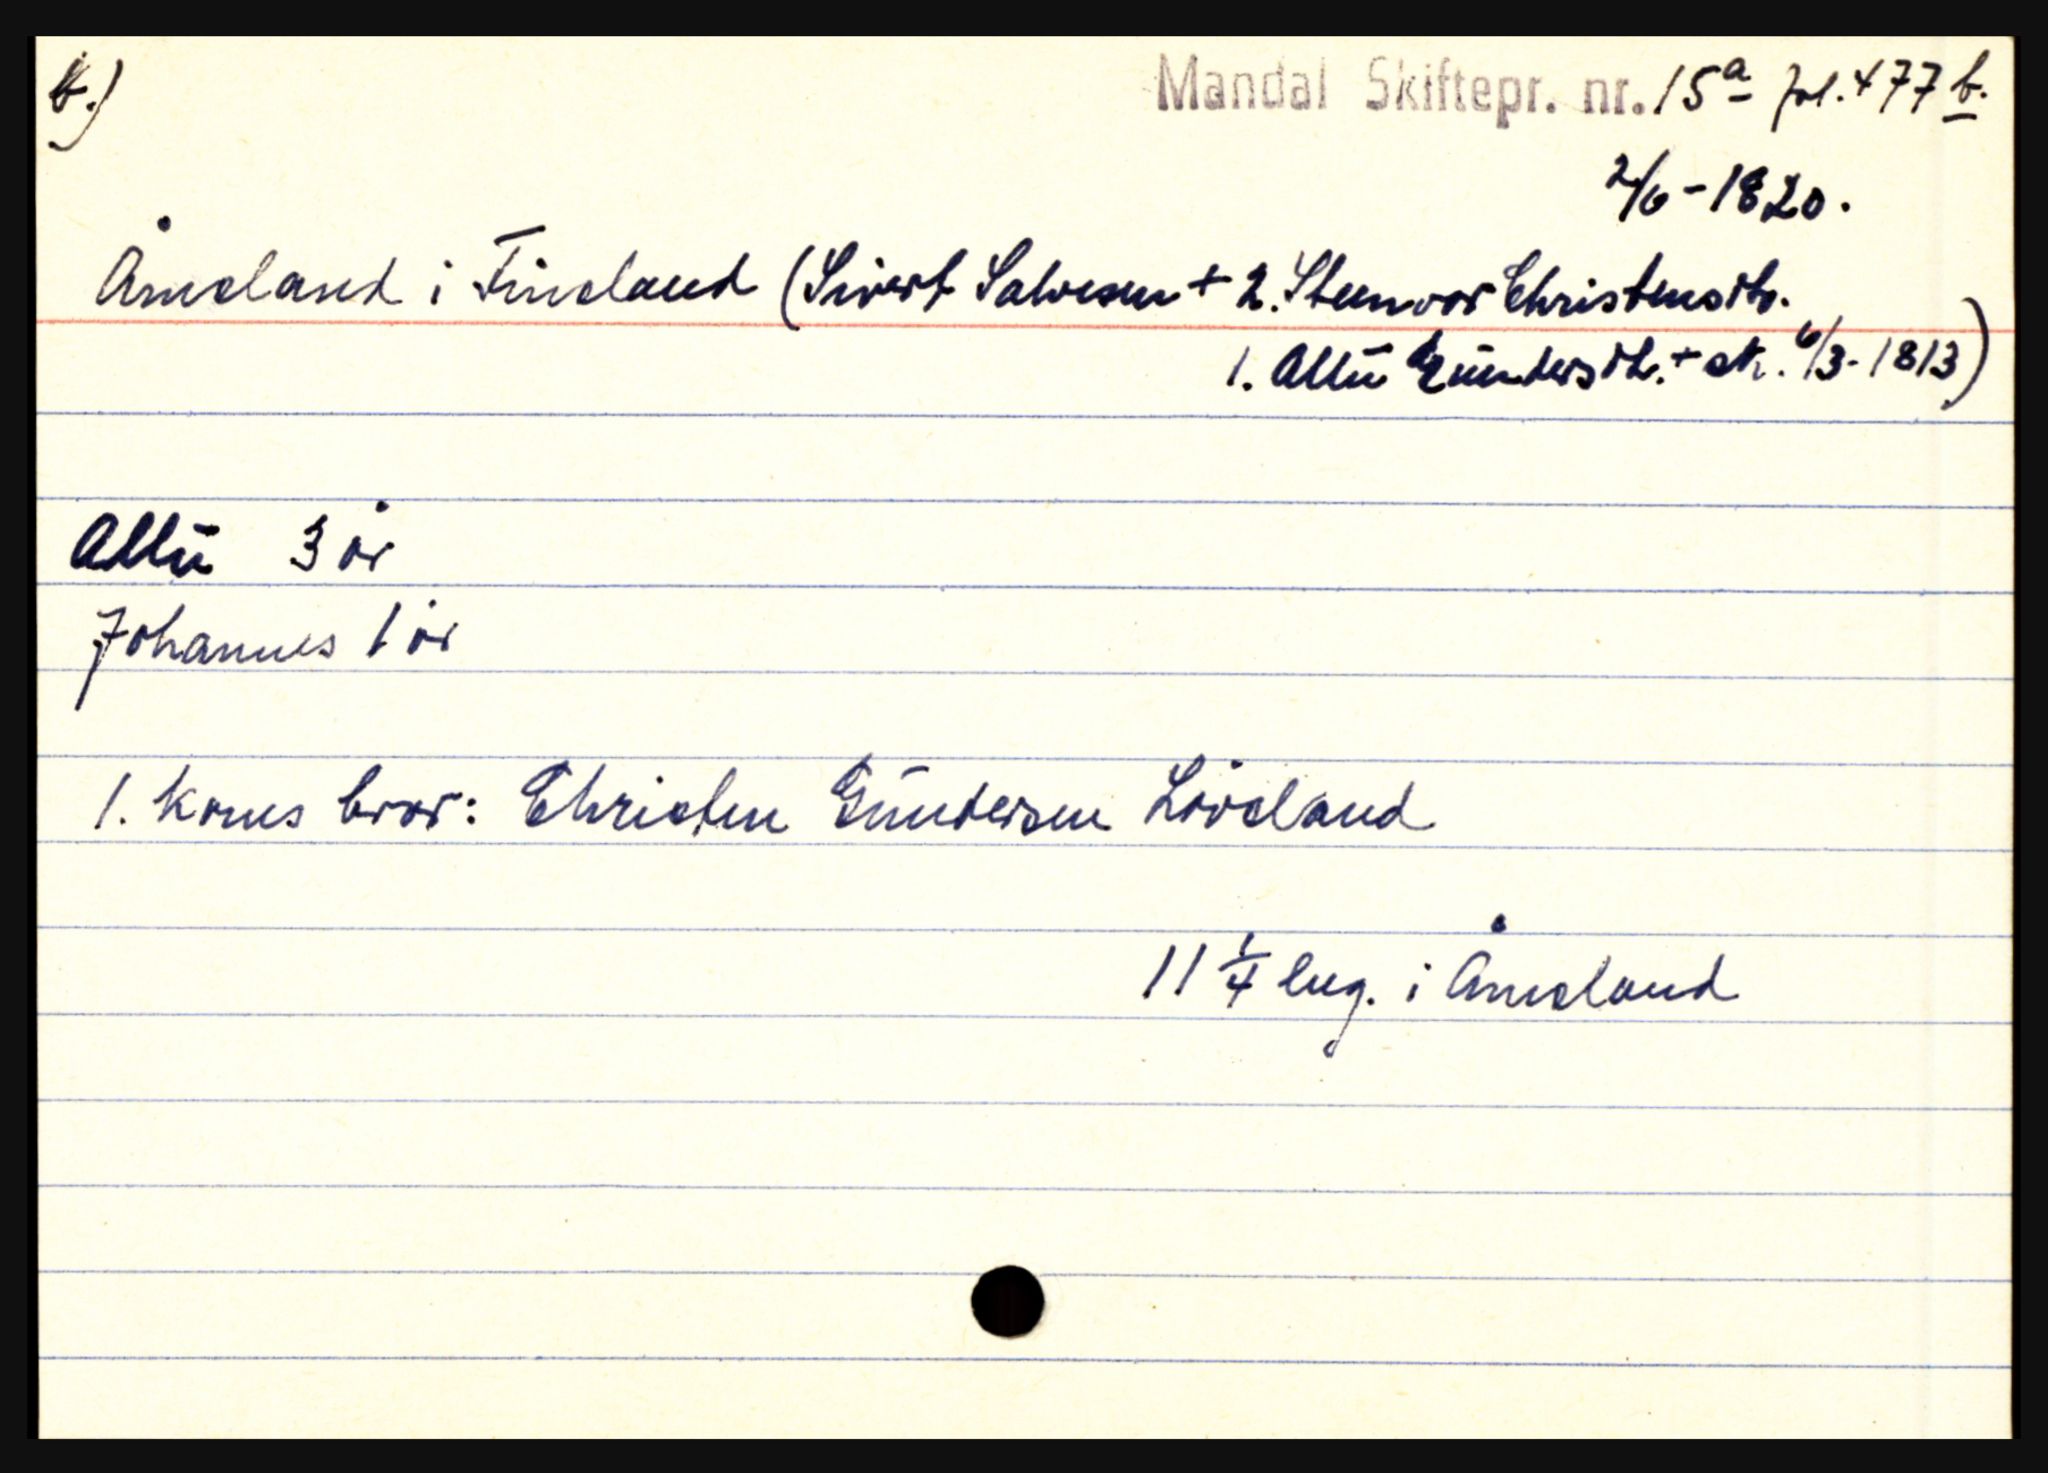 b.)
Mandal Skiftepr. nr. 15a fol. 477 b.
2/6 - 1820.
Åmeland i Fineland (Sivert Salvesen + 2. Steenvor Christensdtr.
1. Allū Gūndersdt. + sk. 6/3 - 1813)
Allū 3 år
Johannes 1 år
1. kones bror: Christen Gūndersen Løvland
11 1/4 eng. i Åmeland